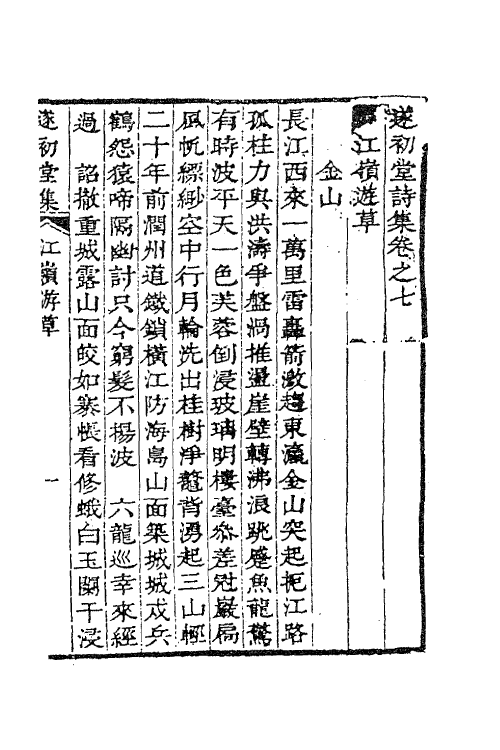 遂初堂詩集卷之七
江嶺遊草
金山
長江西來一萬里雷轟箭激趨東瀛金山突起扼江路
孤柱力與洪濤爭盤渦推盪崖壁轉沸浪跳蹙魚龍驚
有時波平天一色芙蓉倒浸玻璃明樓臺參差冠巖扃
風帆縹緲空中行月輪洗出桂樹淨鼇背湧起三山輕
二十年前潤州道鐵鎖橫江防海島山面築城城戍兵
鶴怨猿啼隔幽討只今窮髮不揚波　六龍巡幸來經
過　詔撤重城露山面皎如褰帳看修蛾白玉闌干浸
遂初堂集
江嶺游草
一